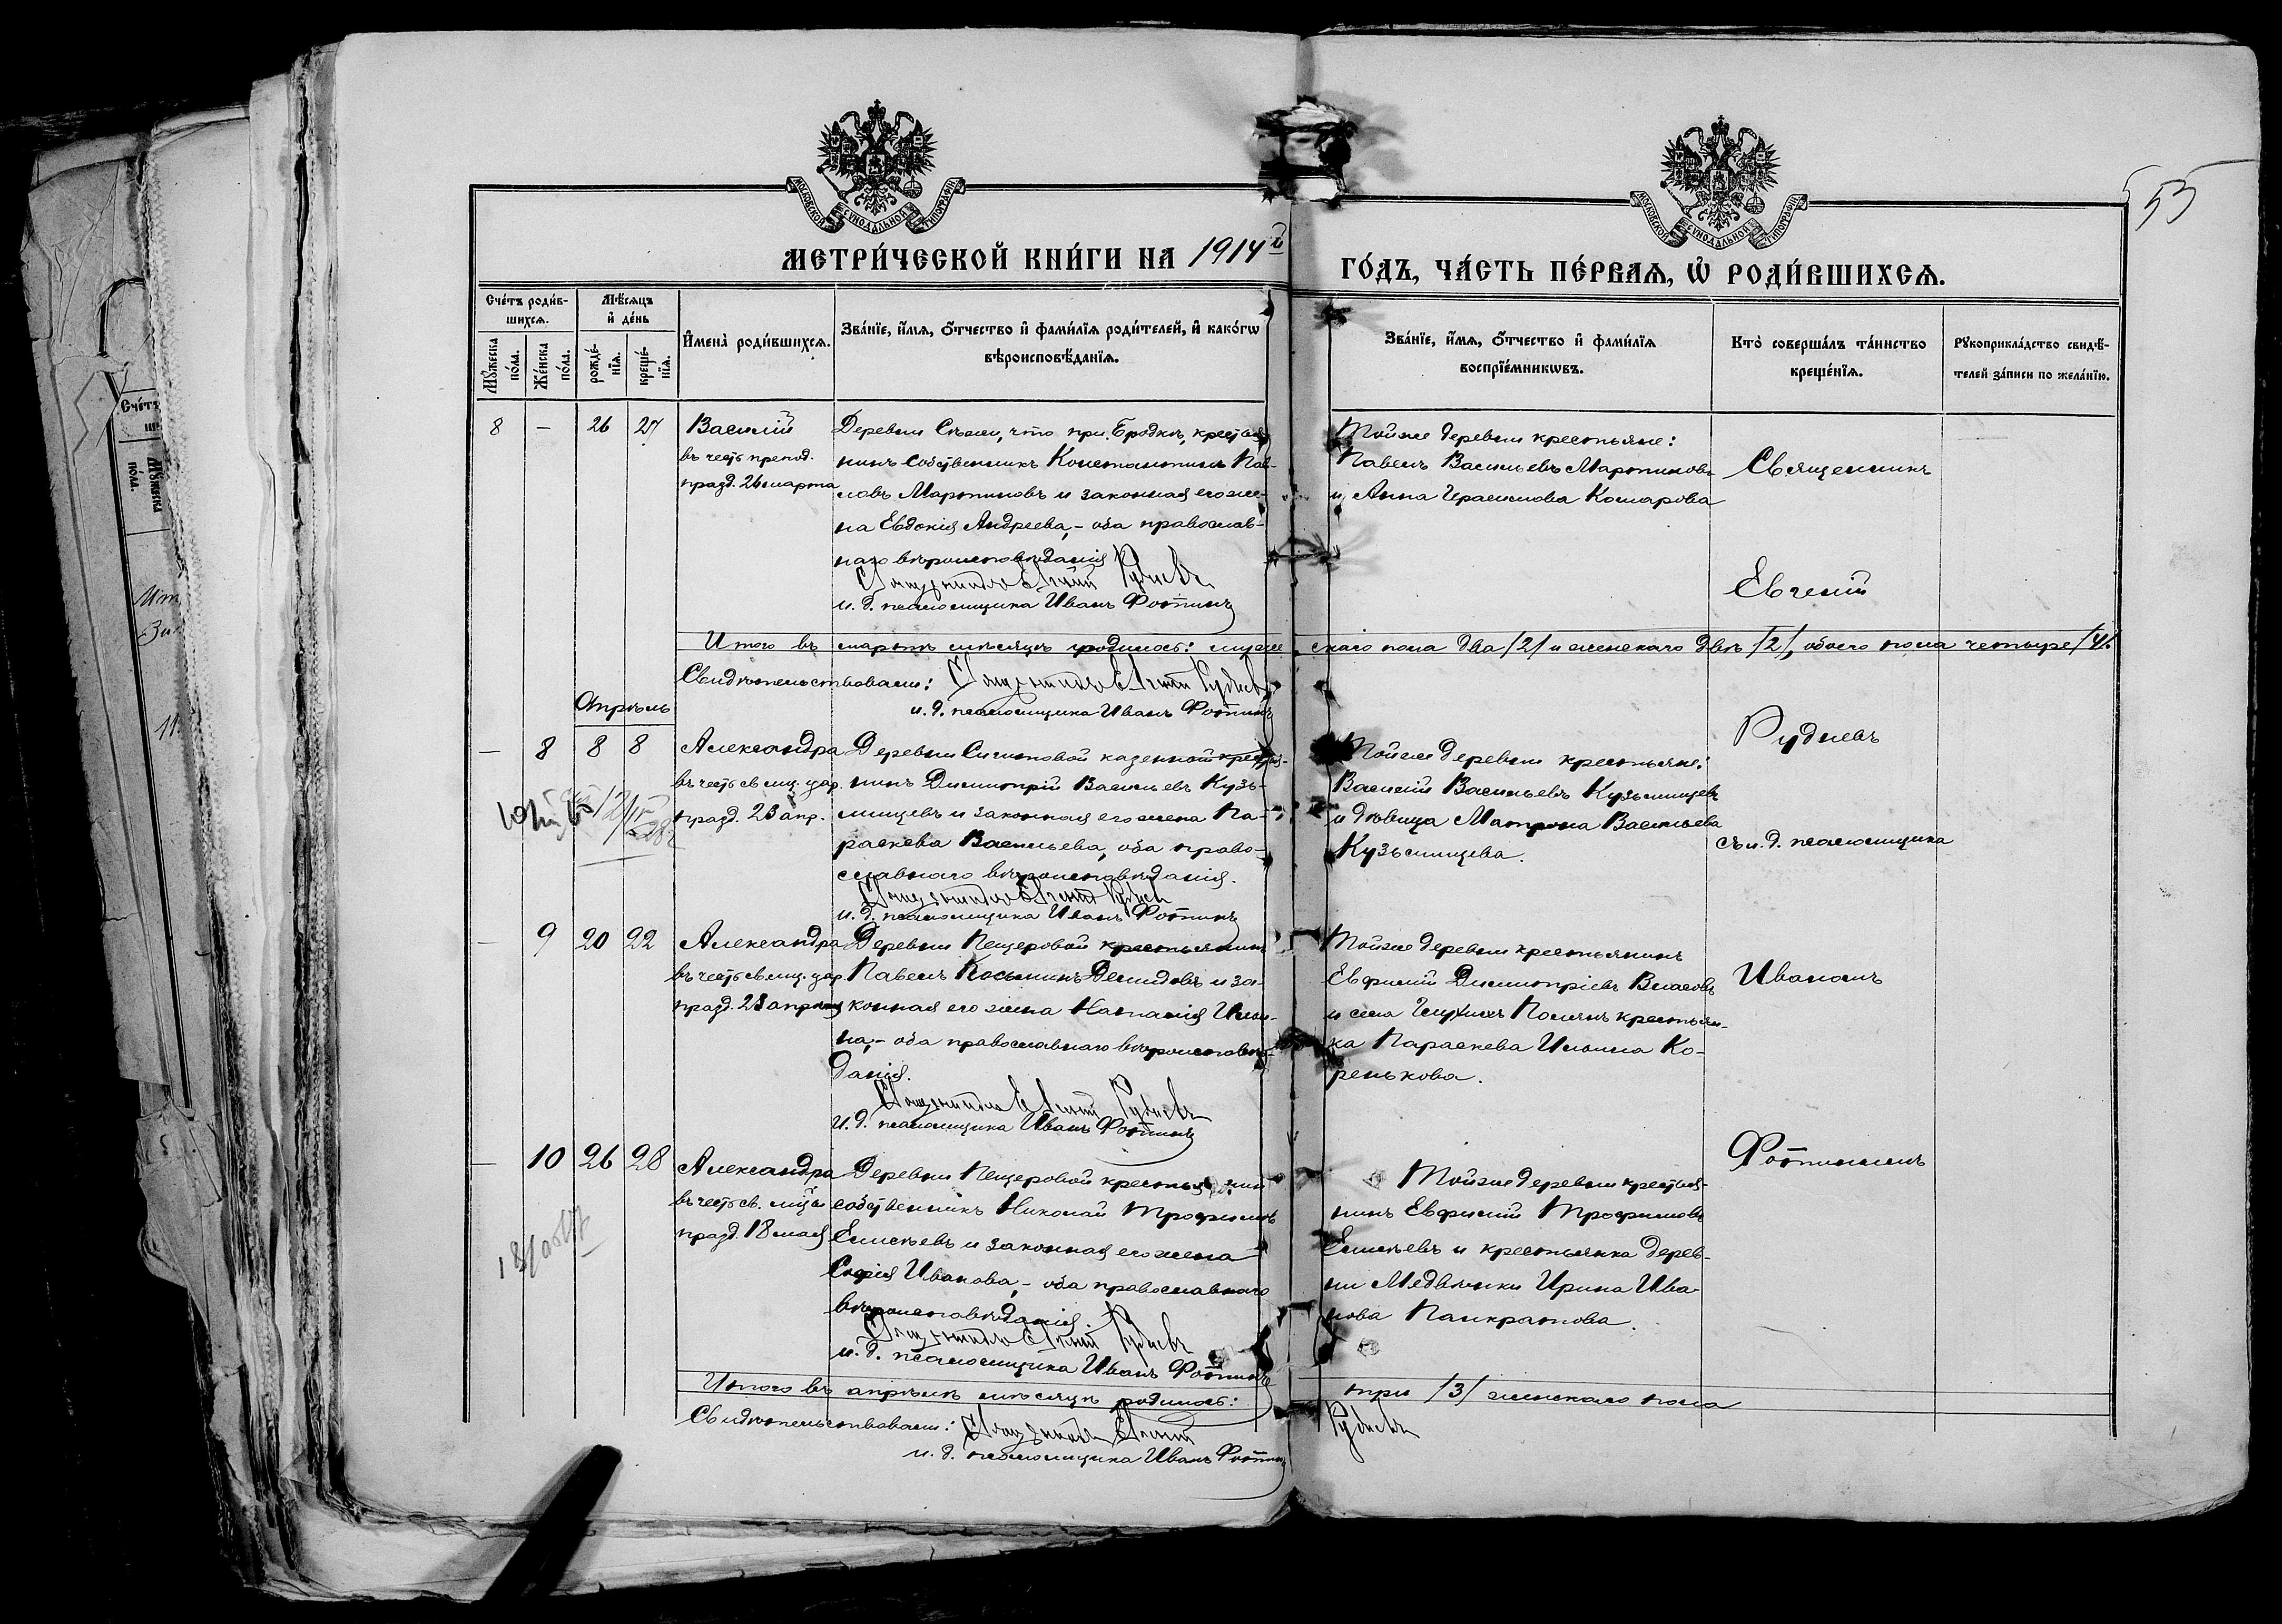 МОСКОВСКОЙ СѴНОДАЛЬНОЙ ТИПОГРАФІИ
МОСКОВСКОЙ СѴНОДАЛЬНОЙ ТИПОГРАФІИ
55
МЕТРИ́ЧЕСКОЙ КНИ́ГИ НА 1914й
ГО́ДЪ, ЧА́СТЬ ПЕ́РВАѦ, Ѽ РОДИ́ВШИХСѦ.
Сче́тъ роди́в-
шихсѧ.
Мꙋ́жеска по́ла.
Же́нска по́ла.
Мѣ́сяцъ
и҆ де́нь
рожде́-
нїѧ.
креще́-
нїѧ.
И҆мена̀ роди́вшихсѧ.
Зва́нїе, и҆́мѧ, ѻ҆́тчество и҆ фами́лїѧ роди́телей, и҆ како́гѡ
вѣроисповѣ́данїѧ.
Зва́нїе, и҆́мѧ, ѻ҆́тчество и҆ фами́лїѧ
воспрїе́мникѡвъ.
Кто̀ соверша́лъ та́инство
креще́нїѧ.
Рꙋкоприкла́дство свидѣ́-
телей за́писи по жела́нїю.
8 — 26 27
Василій
въ честь препод.
празд. 26 марта
Деревни Сѣчи, что при Бродкѣ, крестья-
нинъ собственникъ Константинъ Пав-
ловъ Мартиновъ и законная его же-
на Евдокія Андреева, - оба православ-
наго вѣроисповѣданія
Священникъ Евгеній Рудневъ
и. д. псаломщика Иванъ Фотинъ
Тойже деревни крестьяне:
Павелъ Васильевъ Мартиновъ
и Анна Герасимова Комарова
Священникъ
Евгеній
Рудневъ
съ и. д. псаломщика
Иваномъ
Фотинымъ
Итого въ мартѣ мѣсяцѣ родилось: муже скаго пола два /2/ и женскаго двѣ /2/, обоего пола четыре /4/.
Свидѣтельствовали: Священникъ Евгеній Рудневъ
и. д. псаломщика Иванъ Фотинъ
Апрѣль
— 8 8 8
Александра
въ честь св. мц. цар.
празд. 23 апр.
Деревни Ситиковой казенной крестья-
нинъ Димитрій Васильевъ Кузь-
мищевъ и законная его жена Па-
раскева Васильева, оба право-
славнаго вѣроисповѣданія.
Священникъ Евгеній Рудневъ
и. д. псаломщика Иванъ Фотинъ
Тойже деревни крестьяне:
Василій Васильевъ Кузьмищевъ
и дѣвица Матрона Васильева
Кузьмищева.
— 9 20 22
Александра
въ честь св. мц. цар.
празд. 23 апрѣля
Деревни Пещеровой крестьянинъ
Павелъ Косьминъ Демидовъ и за-
конная его жена Наталія Ильи-
на, - оба православнаго вѣроисповѣ-
данія.
Священникъ Евгеній Рудневъ
и. д. псаломщика Иванъ Фотинъ
Тойже деревни крестьянинъ
Евфимій Димитріевъ Власовъ
и села Глухихъ Полянъ крестьян-
ка Параскева Ильина Ко-
ренькова.
— 10 26 28
Александра
въ честь св. мцы
празд. 18 мая
Деревни Пещеровой крестьянинъ
собственникъ Николай Трофимовъ
Елисѣевъ и законная его жена
Софія Иванова, - оба православнаго
вѣроисповѣданія.
Священникъ Евгеній Рудневъ
и. д. псаломщика Иванъ Фотинъ
Тойже деревни крестья-
нинъ Евфимій Трофимовъ
Елисѣевъ и крестьянка дерев-
ни Медвѣнки Ирина Ива-
нова Панкратова.
Итого въ апрѣлѣ мѣсяцѣ родилось: три /3/ женскаго пола
Свидѣтельствовали: Священникъ Евгеній Рудневъ
и. д. псаломщика Иванъ Фотинъ